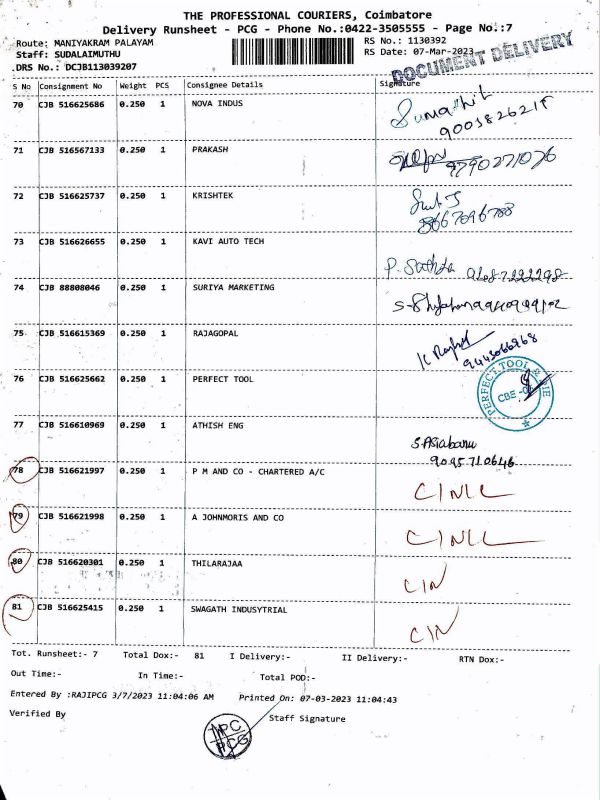 THE PROFESSIONAL COURIERS, Coimbatore
Delivery Runsheet - PCG - Phone No.:0422-3505555 - Page No.:7
Route: MANIYAKRAM PALAYAM RS No.: 1130392
Staff: SUDALAIMUTHU RS Date: 07-Mar-2023
DRS No.: DCJB113039207
DOCUMENT DELIVERY
S No Consignment No Weight PCS Consignee Details Signature
70 CJB 516625686 0.250 1 NOVA INDUS
71 CJB 516567133 0.250 1 PRAKASH
9790271076
72 CJB 516625737 0.250 1 KRISHTEK
8667096788
73 CJB 516626655 0.250 1 KAVI AUTO TECH
P. Sathya
74 CJB 88808046 0.250 1 SURIYA MARKETING
75 CJB 516615369 0.250 1 RAJAGOPAL
9443066968
76 CJB 516625662 0.250 1 PERFECT TOOL
PERFECT TOOL & DIE
CBE
77 CJB 516610969 0.250 1 ATHISH ENG
9095710646
78 CJB 516621997 0.250 1 P M AND CO - CHARTERED A/C
79 CJB 516621998 0.250 1 A JOHNMORIS AND CO
80 CJB 516620301 0.250 1 THILARAJAA
CIN
81 CJB 516625415 0.250 1 SWAGATH INDUSYTRIAL
CIN
Tot. Runsheet:- 7 Total Dox:- 81 I Delivery:- II Delivery:- RTN Dox:-
Out Time:- In Time:- Total POD:-
Entered By :RAJIPCG 3/7/2023 11:04:06 AM Printed On: 07-03-2023 11:04:43
Verified By Staff Signature
TPC
PCG